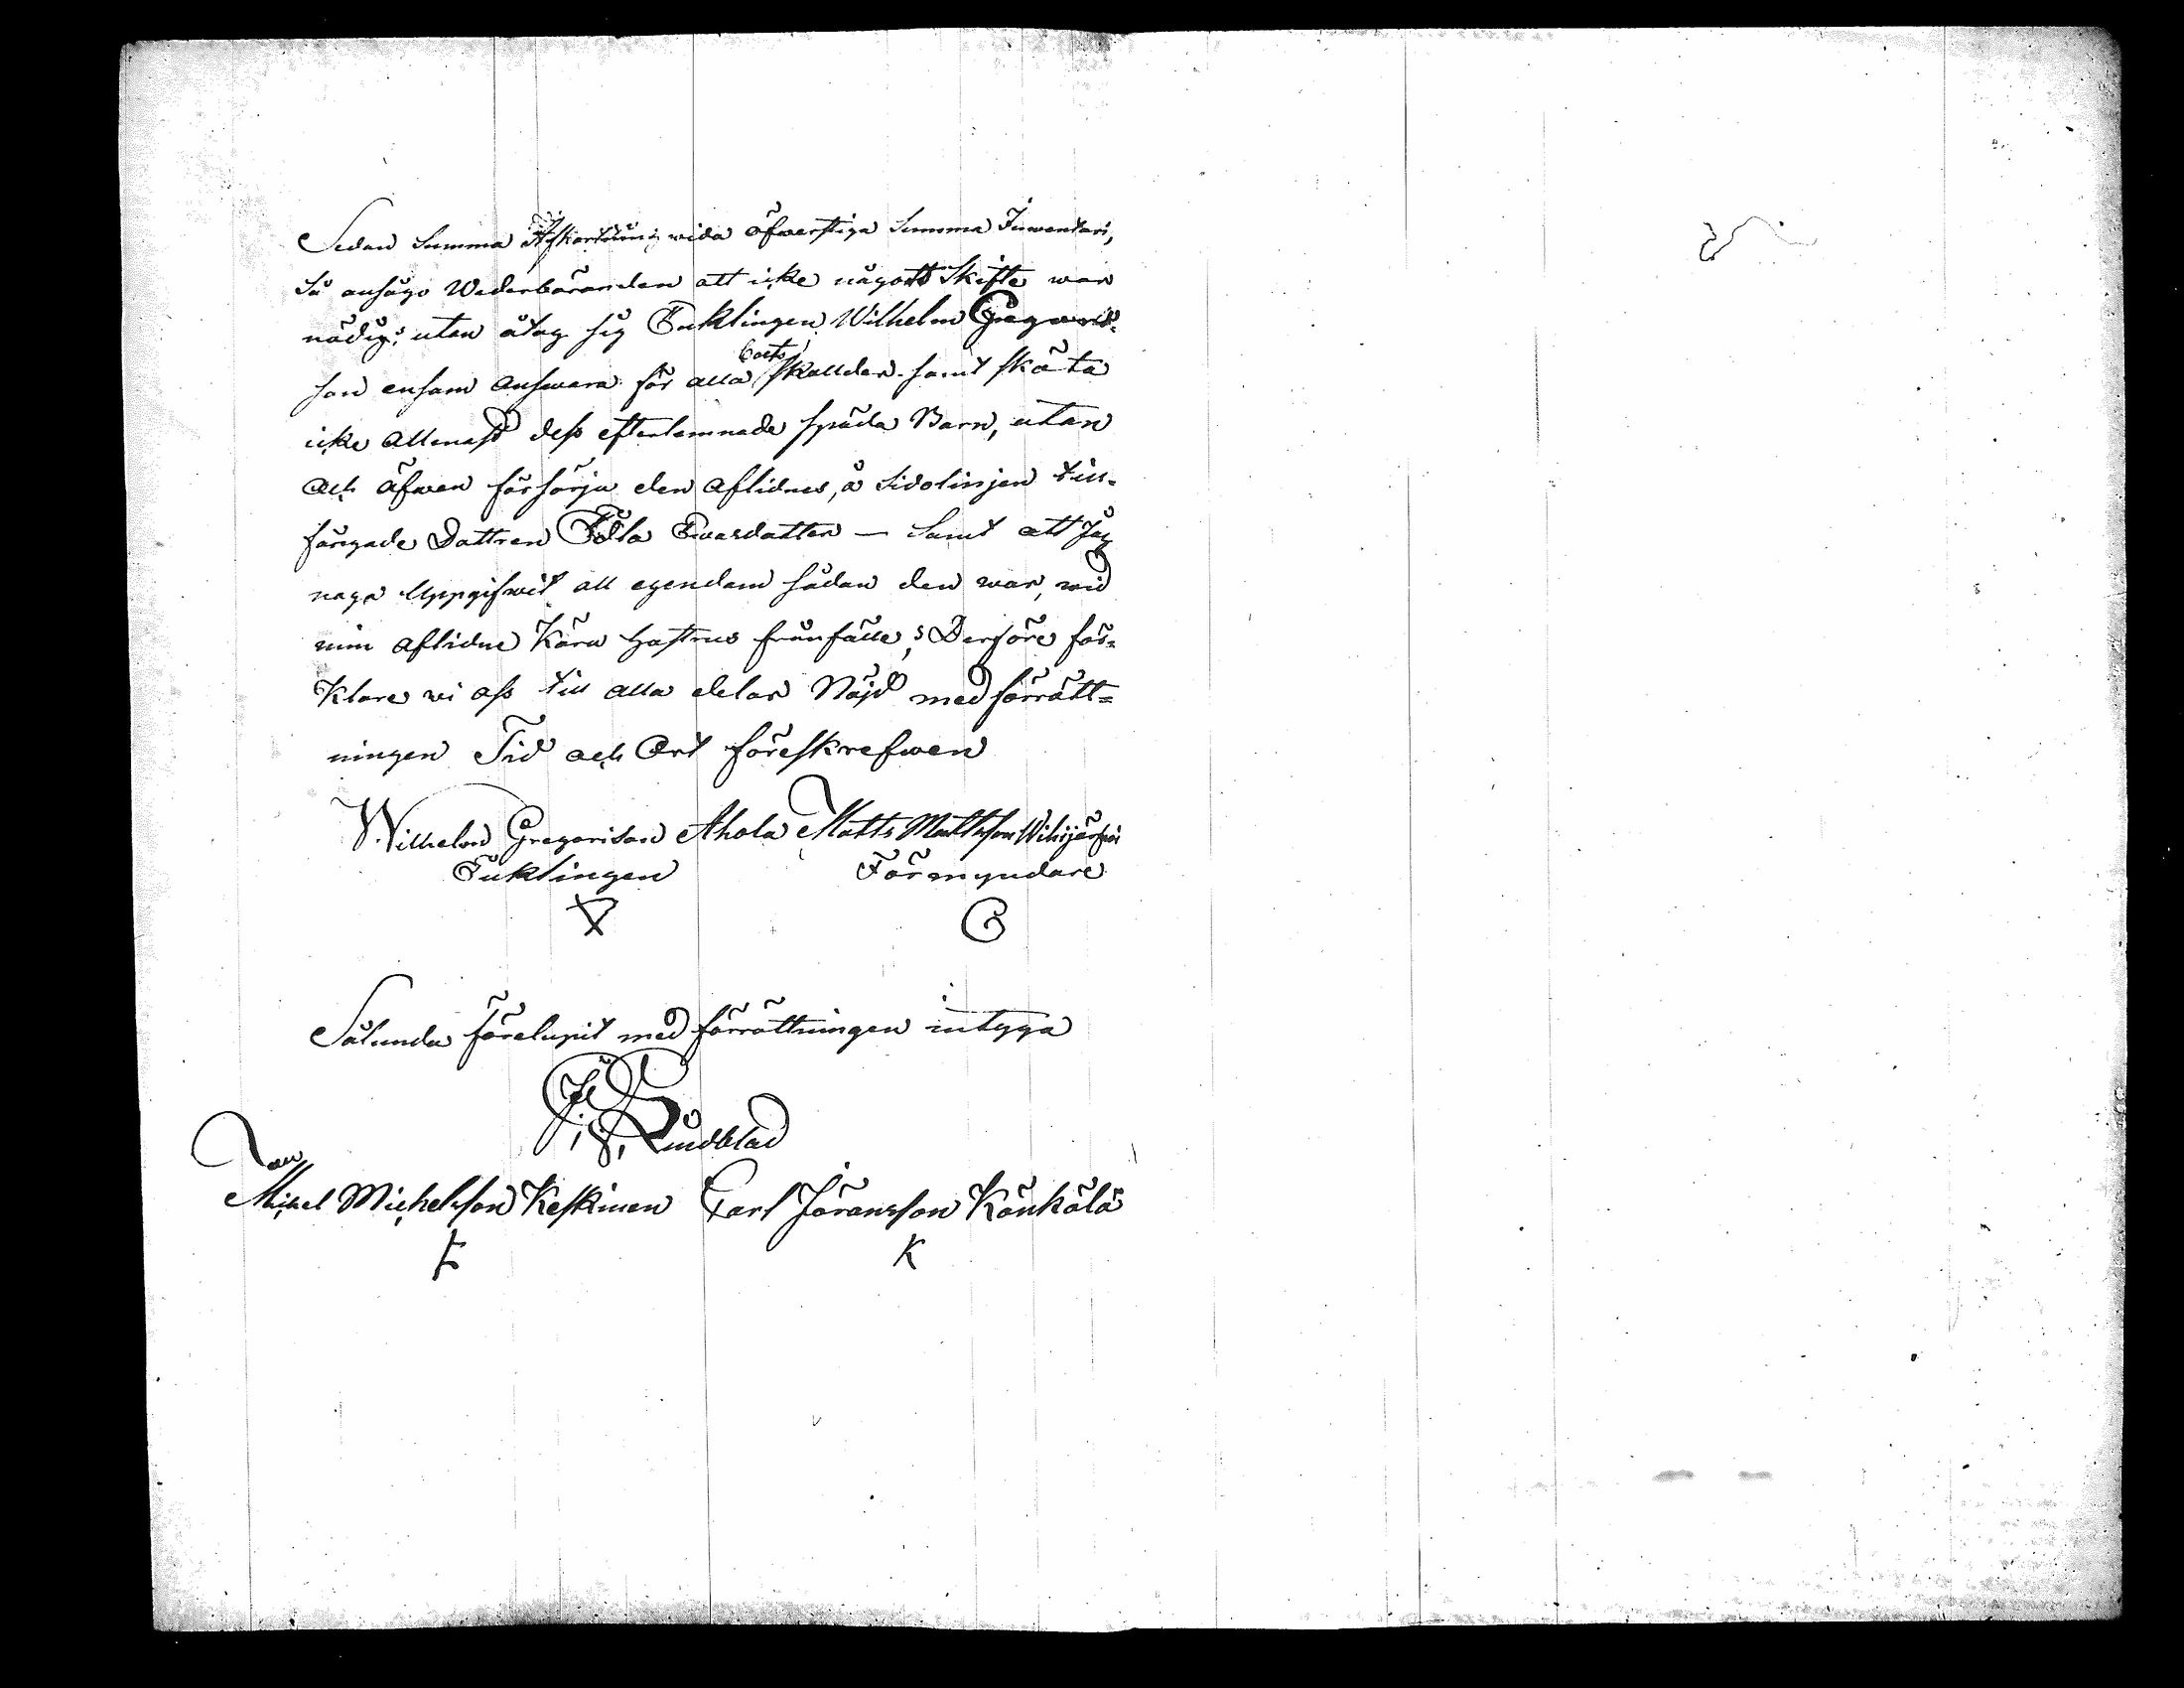 Sedan Summa Afkortning wida öfwerstiga Summa Inwentari,
Så ansågo Wederböranden att icke någott Skifte war
nödig: utan åtog sig Enklingen Wilhelm Gregoris-
son ensam answara för alla boets skullder samt sköta
icke allenast dess efterlemnade späda Barn, utan
och äfwen försörja den aflidnes, å Sidolinjen till-
fångade Dottren Ewasdotter — Samt att jag
noga Uppgifwit all egendom sådan den war, wid
min aflidne Kära Hustrus frånfälle; Derföre för-
Klare wi oss till alla delar Nöjd med förrätt-
ningen Tid och Ort föreskrefwen
Wilhelm Gregorisson Ahola Matts Mattsson Wihijärfwi
Enklingen Förmyndare
Sålunda förelupit med förrättningen intyga
Lindblad
Mickel Michelsson Keskinen Carl Jöransson Könkölä
K